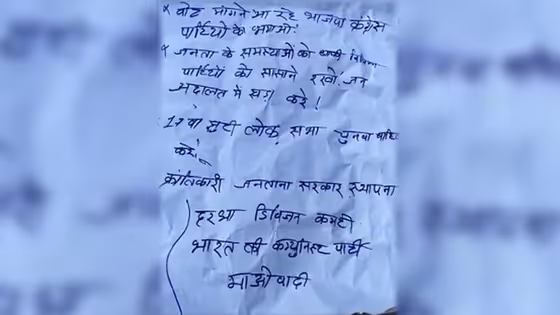 * वोट मांगने आ रहे भाजपा कंग्रेस
पार्टियों के भगाओ!
* जनता के समस्याओं को
पार्टियों को सामने रखो! जन
अदालत में खड़ा करे!
17 वा लोक सभा चुनाव
करे!
क्रांतिकारी जनताना सरकार स्थापना
दरभा डिविजन कमेटी
भारत की कम्युनिस्ट पार्टी
माओवादी